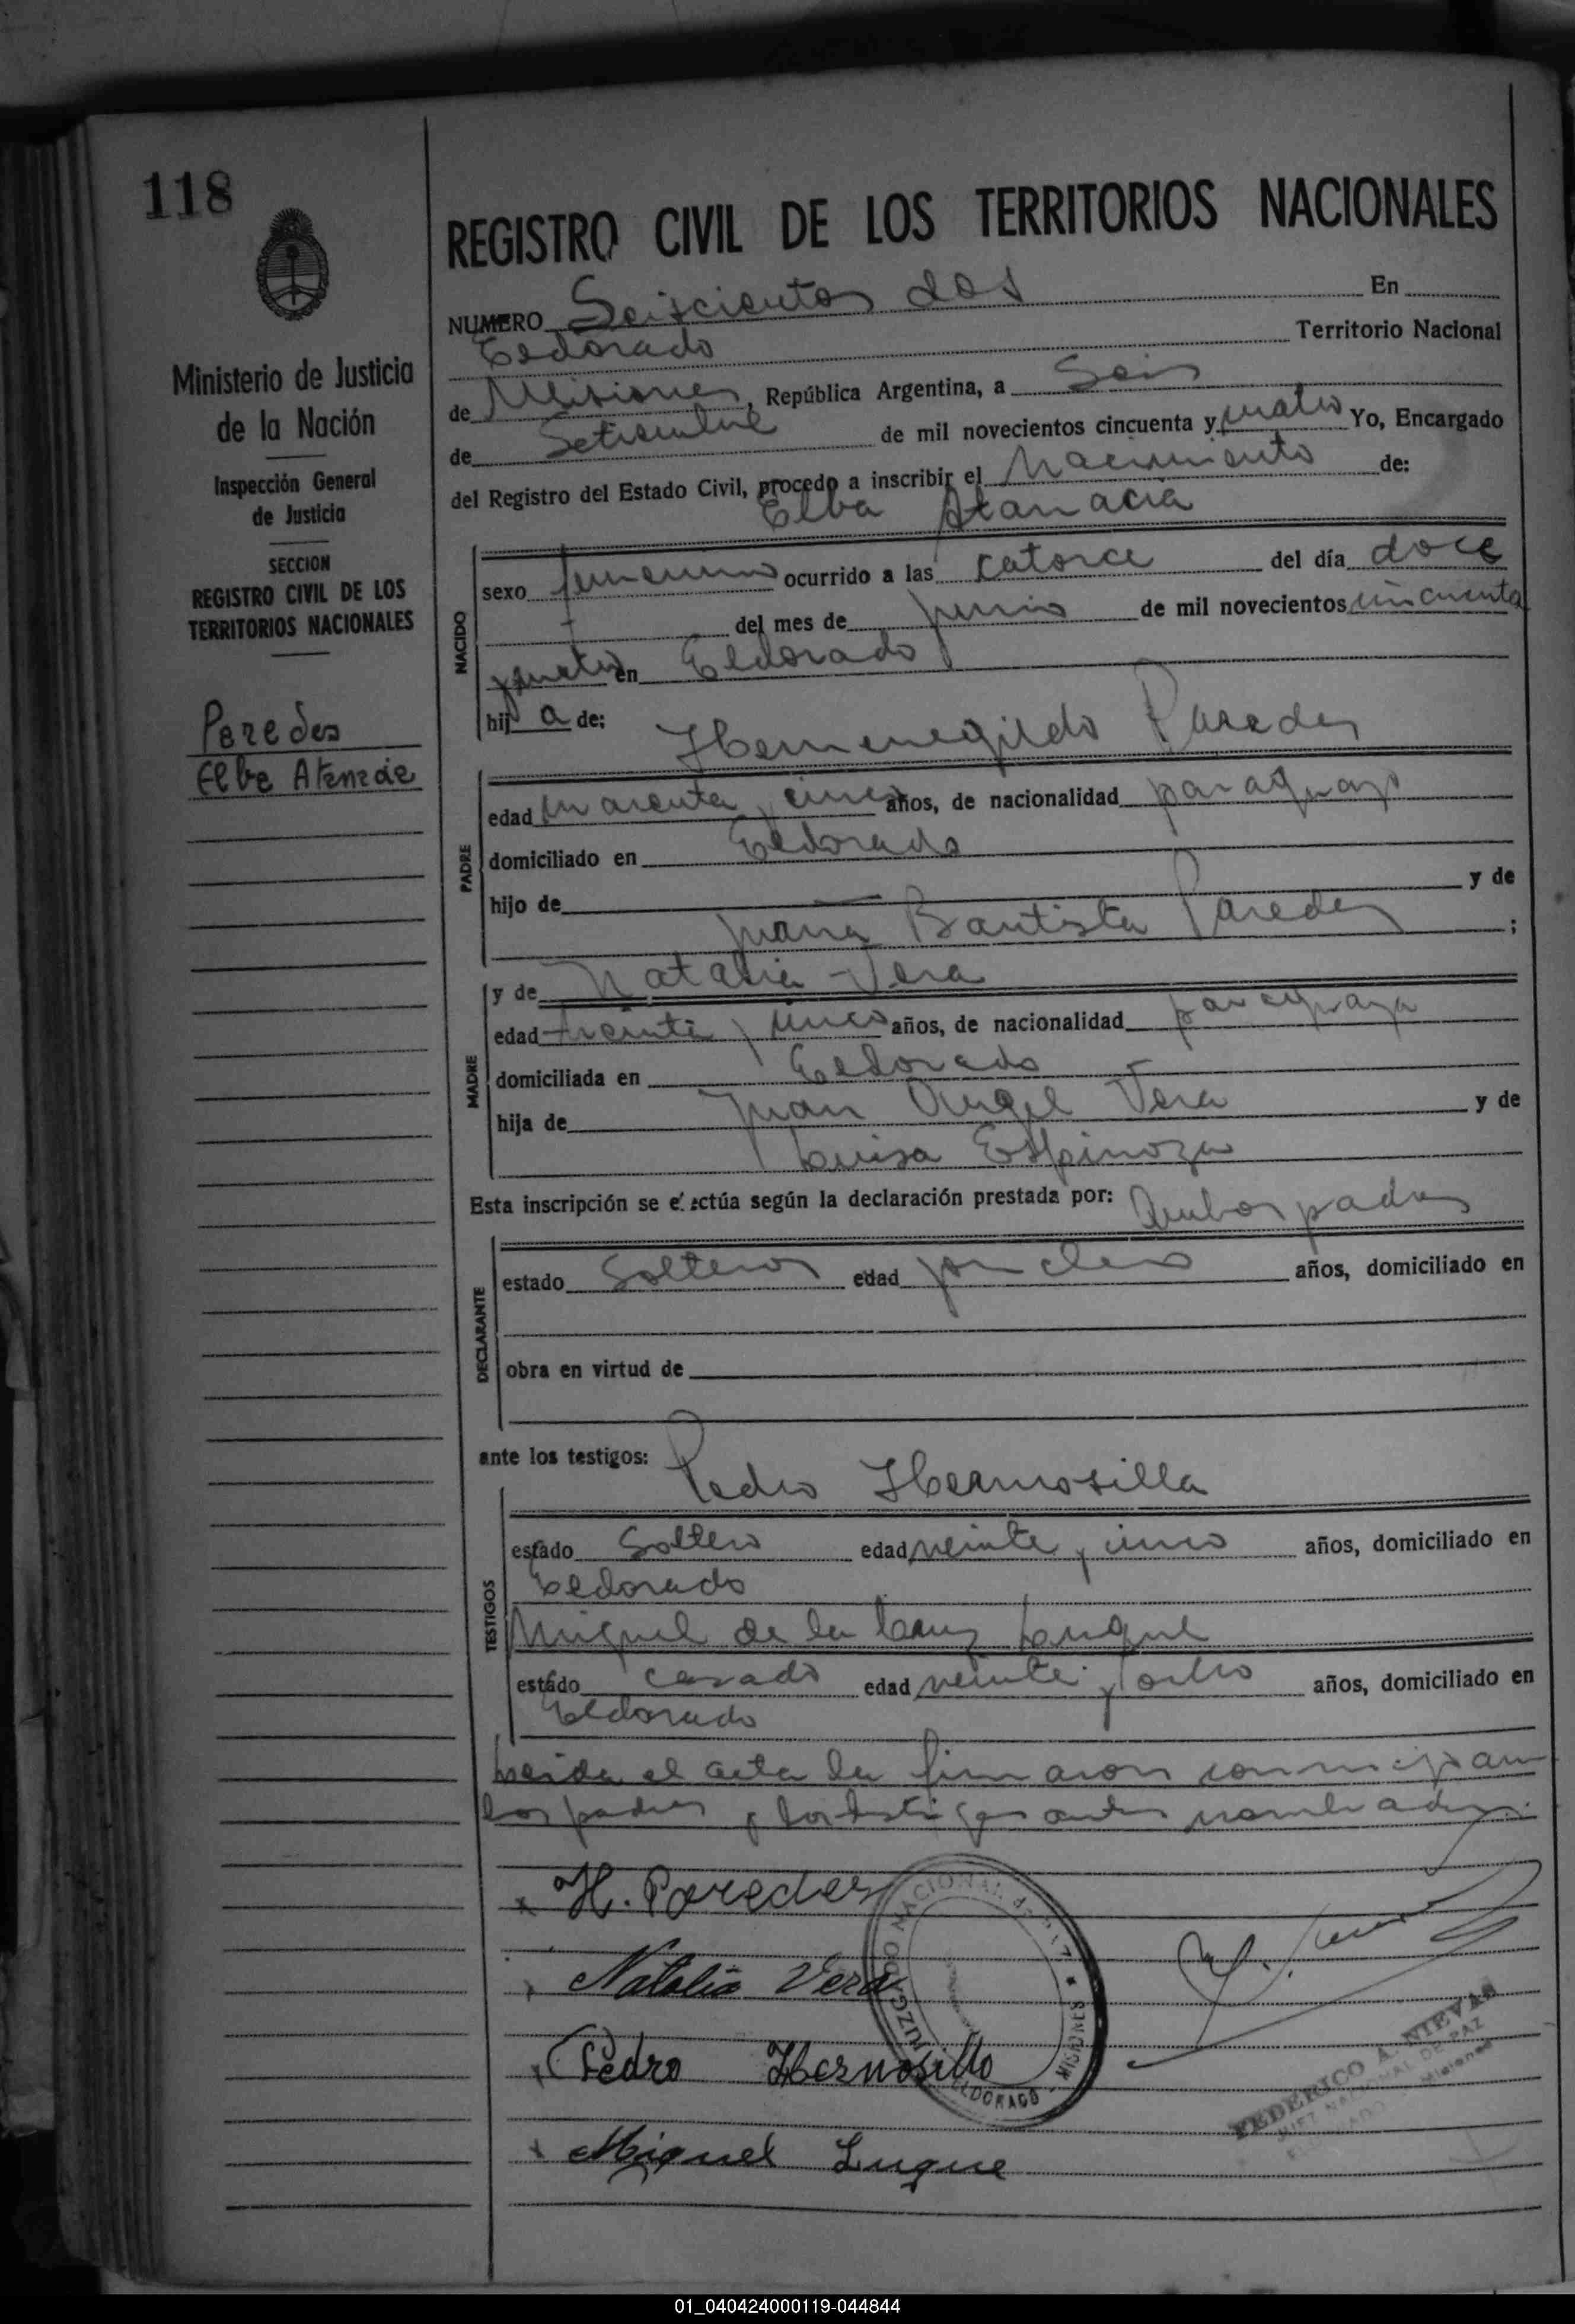 118
Ministerio de Justicia
de la Nación
Inspección General
de Justicia
SECCION
REGISTRO CIVIL DE LOS
TERRITORIOS NACIONALES
Paredes
Elba Atanacia
REGISTRO CIVIL DE LOS TERRITORIOS NACIONALES
NUMERO Seiscientos dos En
Eldorado Territorio Nacional
de Misiones, República Argentina, a Seis
de Setiembre de mil novecientos cincuenta y cuatro Yo, Encargado
del Registro del Estado Civil, procedo a inscribir el Nacimiento de:
Elba Atanacia
NACIDO
sexo femenino ocurrido a las catorce del día doce
del mes de junio de mil novecientos cincuenta
y cuatro en Eldorado
hija de: Hermenegildo Paredes
PADRE
edad cuarenta y cinco años, de nacionalidad paraguayo
domiciliado en Eldorado
hijo de y de
Juana Bautista Paredes ;
y de Natalia Vera
MADRE
edad treinta y cinco años, de nacionalidad paraguaya
domiciliada en Eldorado
hija de Juan Angel Vera y de
Luisa Espinoza
Esta inscripción se efectúa según la declaración prestada por: Ambos padres
DECLARANTE
estado Solteros edad años, domiciliado en
obra en virtud de
ante los testigos: Pedro Hermosilla
TESTIGOS
estado Soltero edad veinte y cinco años, domiciliado en
Eldorado
Miguel de la Cruz Luque
estado casado edad veinte y ocho años, domiciliado en
Eldorado
Leida el acta la firmaron conmigo
los padres y los testigos antes nombrados.
x H. Paredes
x Natalia Vera
x Pedro Hermosilla
x Miguel Luque
JUZGADO NACIONAL DE PAZ ★ ELDORADO - MISIONES
FEDERICO A. NIEVAS
JUEZ NACIONAL DE PAZ
ELDORADO - Misiones
01_040424000119-044844